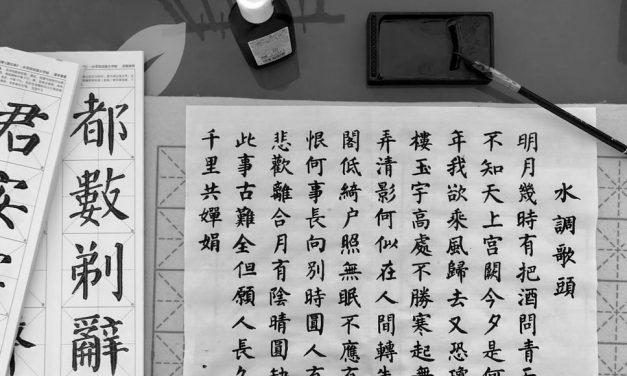 水調歌頭
明月幾時有把酒問青
不知天上宮闕今夕是何
年我欲乘風歸去又恐瓊
樓玉宇高處不勝寒起舞
弄清影何似在人間轉朱
閣低綺户照無眠不應有
恨何事長向別時圓人有
悲歡離合月有陰晴圓缺
此事古難全但願人長久
千里共嬋娟
都數剃辭
君安